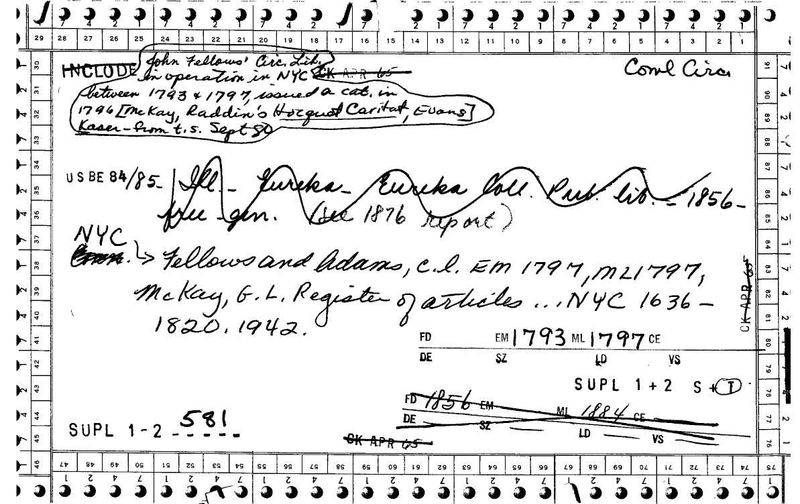 29 28 27 26 25 24 23 22 21 20 19 18 17 16 15 14 13 12 11 10 9 8 7 6 5 4 3 2 1
INCLUDE John Fellows' Circ. Lib. Coml Circ.
in operation in NYC CK APR 65
between 1793 & 1797, issued a cat. in
1796 [McKay, Raddin's Hocquet Caritat, Evans]
Kaser - from t.s. Sept 80
US BE 84/85- Ill. - Eureka - Eureka Coll. Pub. lib. - 1856 -
free - gen. (see 1876 report)
NYC
Conn. Fellows and Adams, c.l. EM 1797, ML1797,
McKay, G.L. Register of articles ... NYC 1636 -
1820. 1942.
CK APR 65
FD EM 1793 ML 1797 CE
DE SZ LD VS
SUPL 1 + 2 S + T
FD 1856 EM ML 1884 CE
DE SZ LD VS
SUPL 1-2 581
CK APR 65
30 31 32 33 34 35 36 37 38 39 40 41 42 43 44 45 46
91 88 87 86 85 84 83 82 81 80 79 78 77 76
47 48 49 50 51 52 53 54 55 56 57 58 59 60 61 62 63 64 65 66 67 68 69 70 71 72 73 74 75